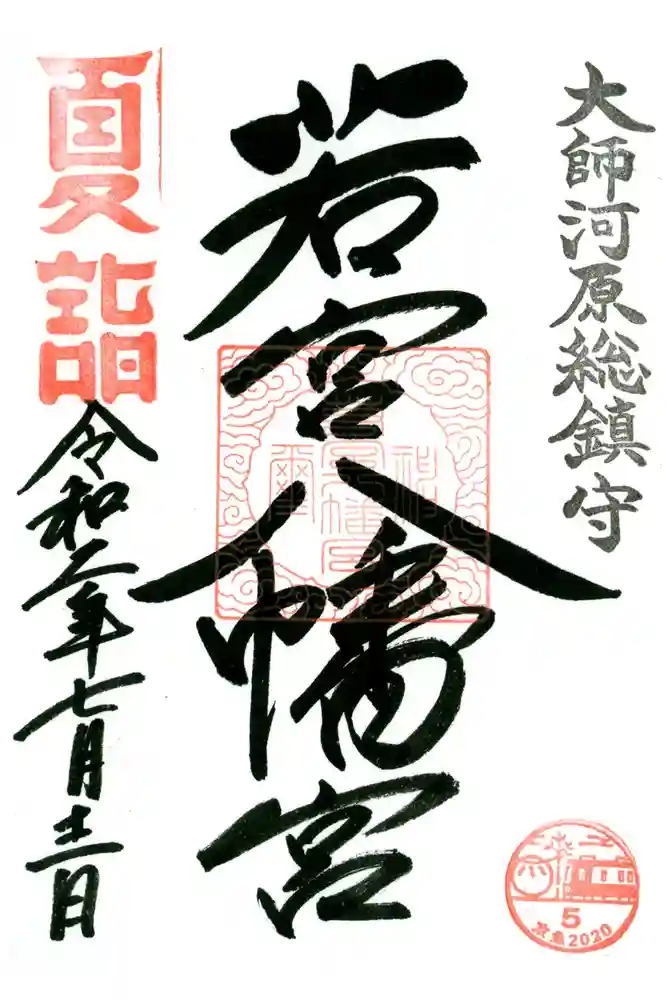 大師河原総鎮守
若宮八幡宮
夏詣
令和二年七月十二日
5
京急2020